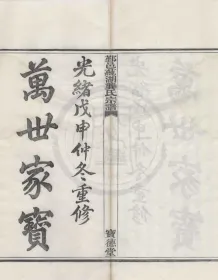 光緒戊申仲冬重修
萬世家寶
寶德堂